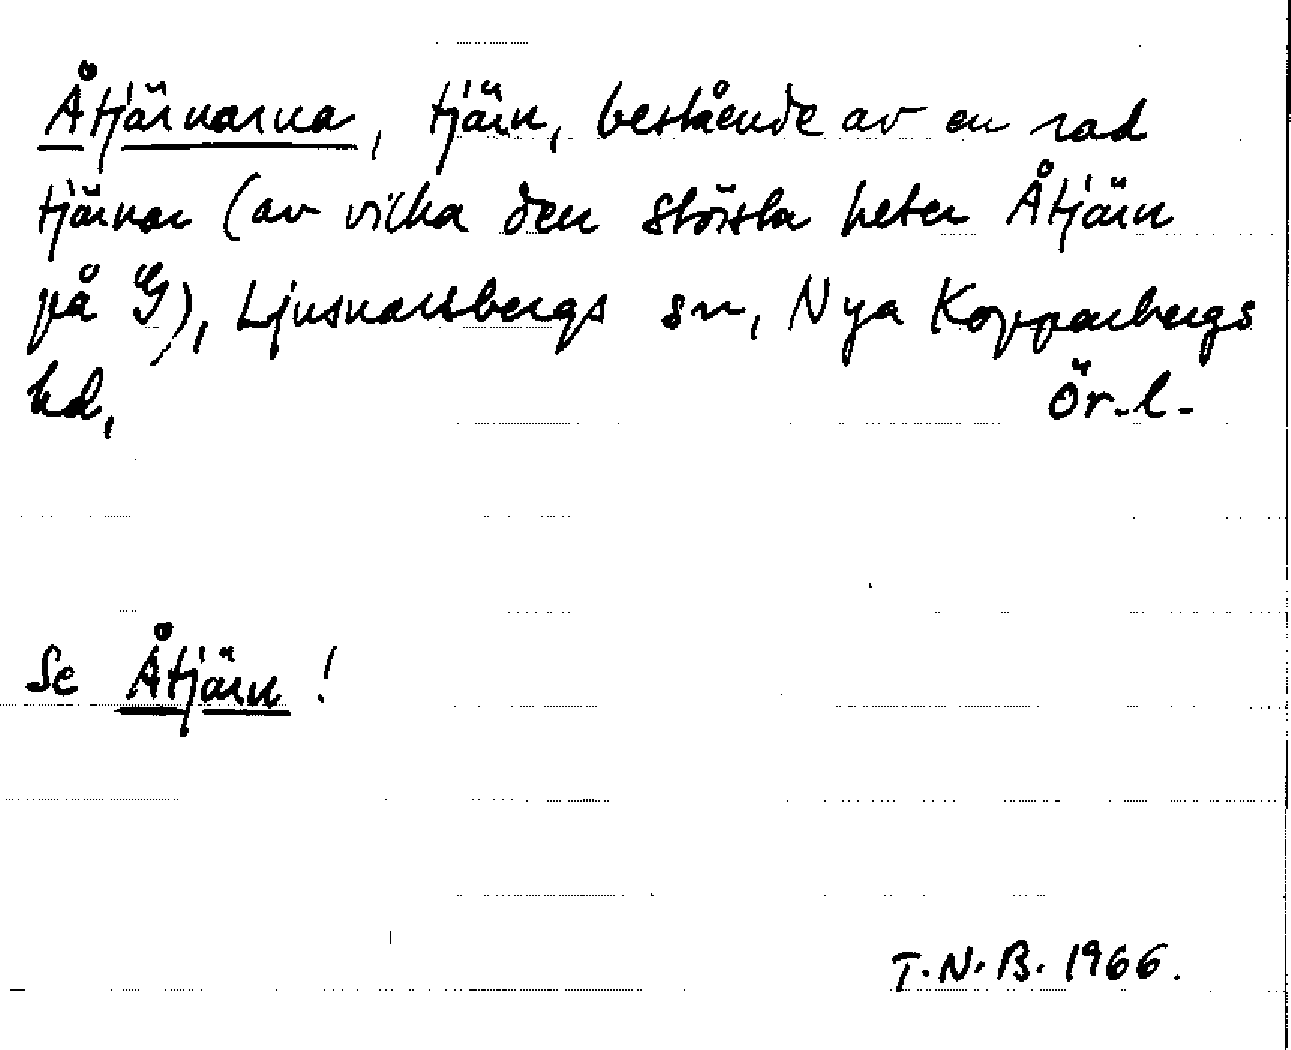 Åtjärnarna, tjärn, bestående av en rad
tjärnar (av vilka den största heter Åtjärn
på G), Ljusnarsbergs sn, Nya Kopparbergs
hd, Ör. l.
Se Åtjärn!
T.N.B. 1966.